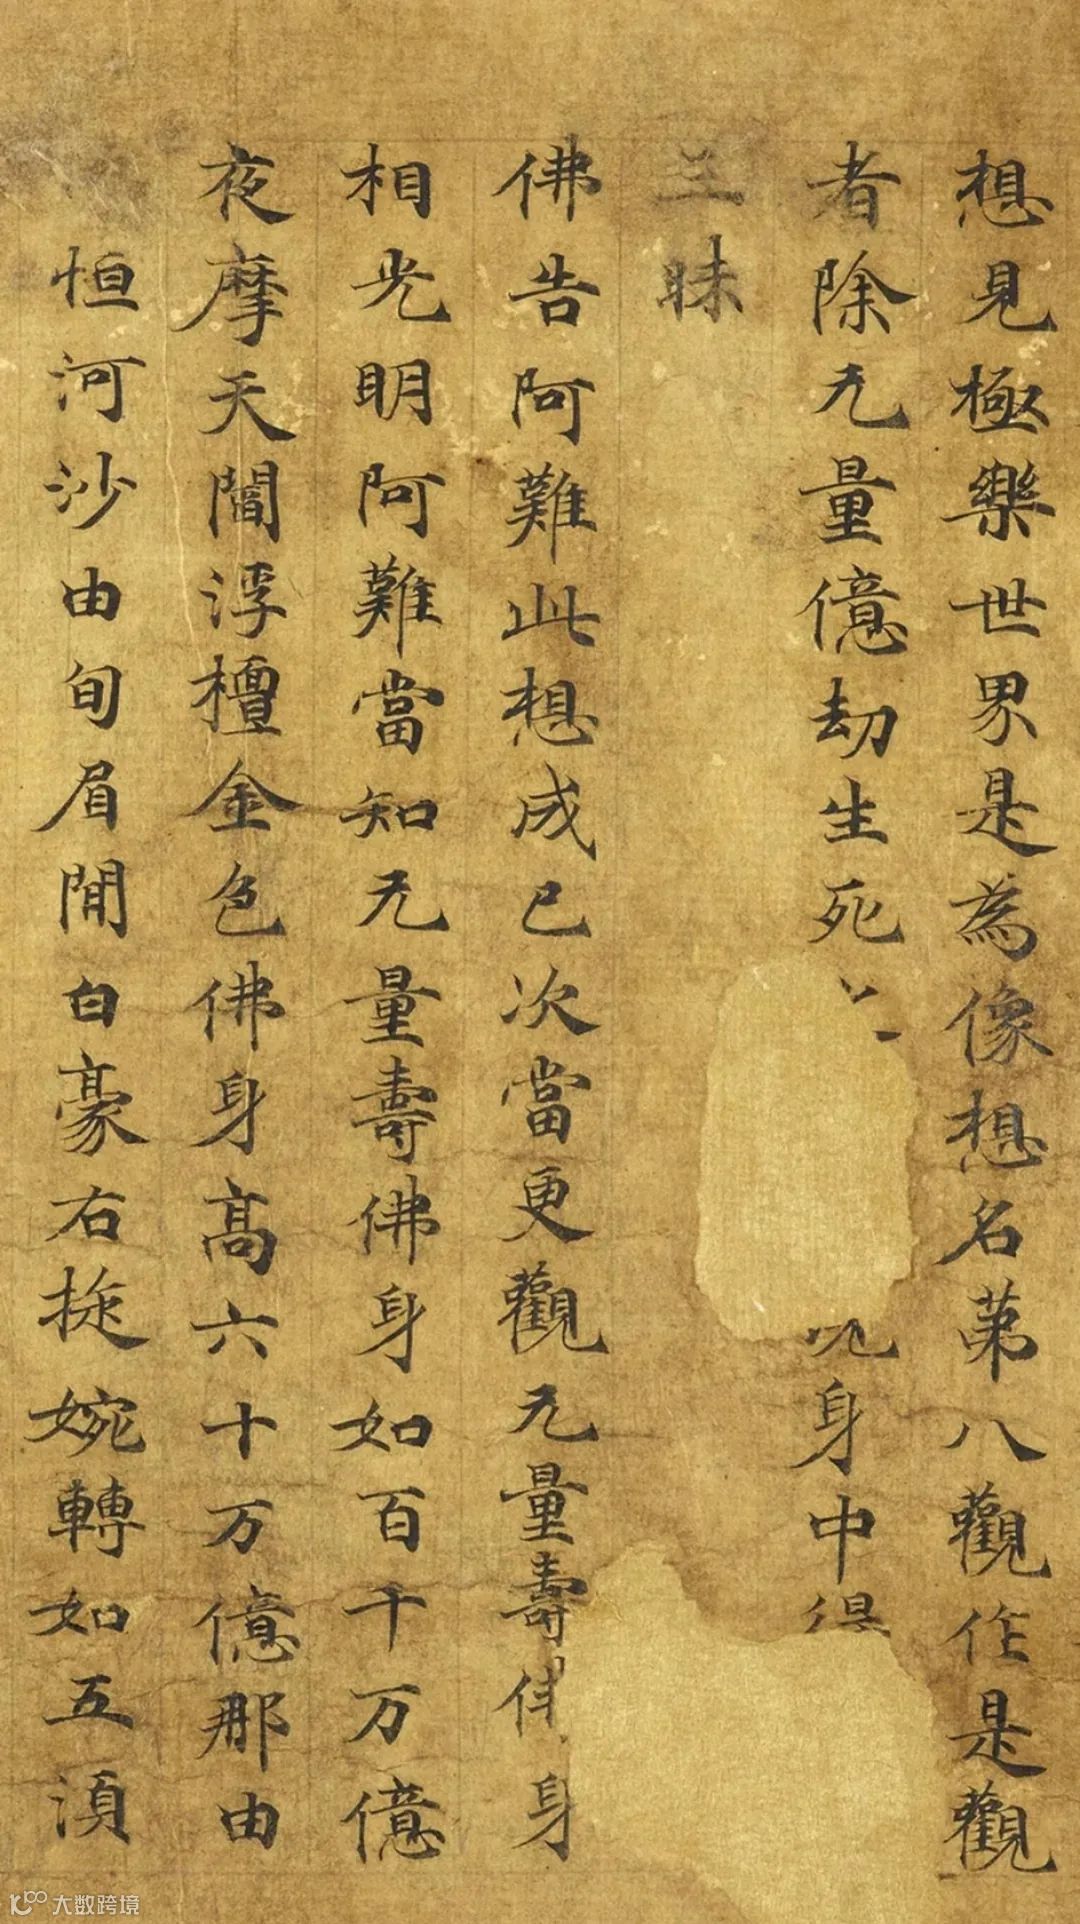 想見極樂世界是為像想名第八觀作是觀
者除无量億劫生死身中
三昧
佛告阿難此想成已次當更觀无量壽佛身
相光明阿難當知无量壽佛身如百千万億
夜摩天閻浮檀金色佛身高六十万億那由
恒河沙由旬眉間白豪右旋婉轉如五須
大数跨境